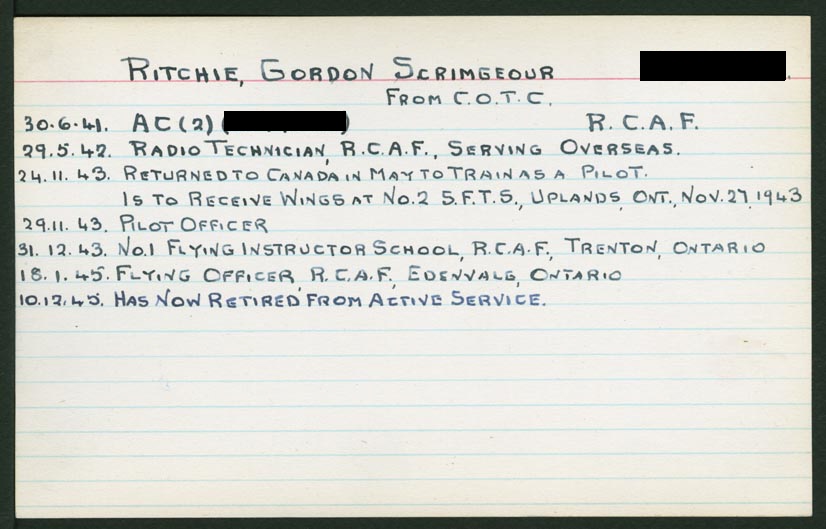 RITCHIE, GORDON SCRIMGEOUR
FROM C.O.T.C.
30.6.41. AC(2) ( ) R.C.A.F.
29.5.42. RADIO TECHNICIAN, R.C.A.F., SERVING OVERSEAS.
24.11.43. RETURNED TO CANADA IN MAY TO TRAIN AS A PILOT.
IS TO RECEIVE WINGS AT NO.2 S.F.T.S., UPLANDS, ONT., NOV. 27, 1943
29.11.43. PILOT OFFICER
31.12.43. NO.1 FLYING INSTRUCTOR SCHOOL, R.C.A.F., TRENTON, ONTARIO
18.1.45. FLYING OFFICER, R.C.A.F., EDENVALE, ONTARIO
10.12.45. HAS NOW RETIRED FROM ACTIVE SERVICE.